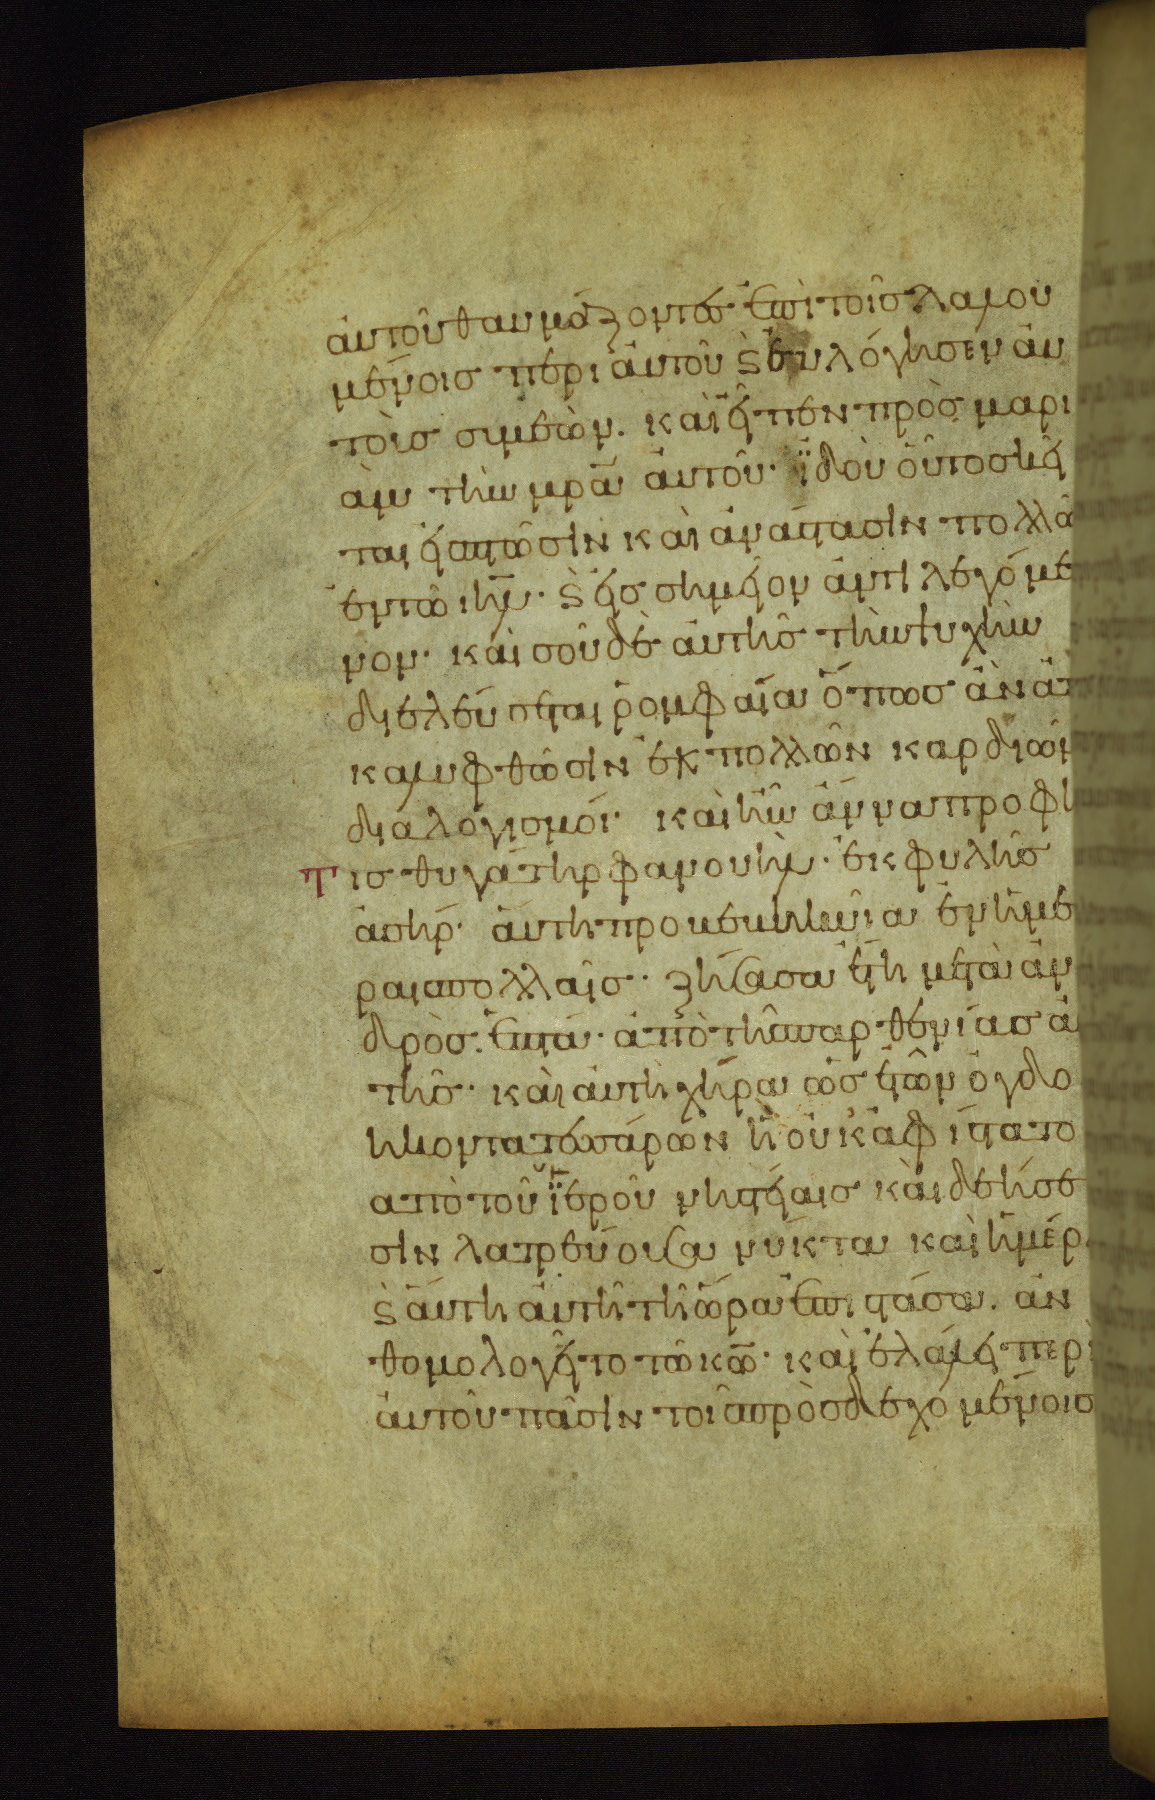 ἀυτοῦ θαυμάζοντες ἐπὶ τοῖς λαλου
μένοις περι ἀυτοῦ ϗ ἐυλόγησεν ἀυ
τοὶς σιμεὼν. καὶ ἔιπεν πρὸς μαρι
ὰμ τὴν μρ̅α ἀυτοῦ· ϊδοὺ οὗτος κεῖ
ται ἐις πτῶσιν καὶ ἀνάστασιν πολλῶ
ἐν τῶ ιη̅λ· ϗ ἐις σημεῖον ἀντιλεγόμε
νον· καὶ σοῦ δὲ ἀυτῆς τὴν ψυχὴν
διελεύσεται ῥομφαία ὅπως ἂν ἀπ
καλυφθῶσιν ἐκ πολλῶν καρδιῶν
διαλογισμόι· καὶ ἦν ἄννα προφη
τις θυγάτηρ φανουὴλ· ἐκ φυλῆς
ἀσήρ· ἅυτη προκεκηκυῖα ἐν ἡμέ
ραις πολλαῖς· ζήσασα ἔτη μετὰ ἀν
δρὸς. ἑπτά· ἀπὸ τῆς παρθενίας ἀ
τῆς· καὶ ἀυτὴ χήρα ὡς ἐτῶν ὀγδο
ηκοντατεσσάρων ἣ οὐκ ἀφίστατο
απὸ τοῦ ϊεροῦ νηστείαις καὶ δεήσε
σιν λατρεύουσα νύκτα καὶ ἡμέρ
ϗ ἅυτη ἀυτῆ τῆ ὥρα ἐπιστάσα. ἀν
θομολογεῖτο τῶ κω̅· καὶ ἐλάλει περὶ
ἀυτοῦ πᾶσιν τοῖς πρὸσδεχομένοις